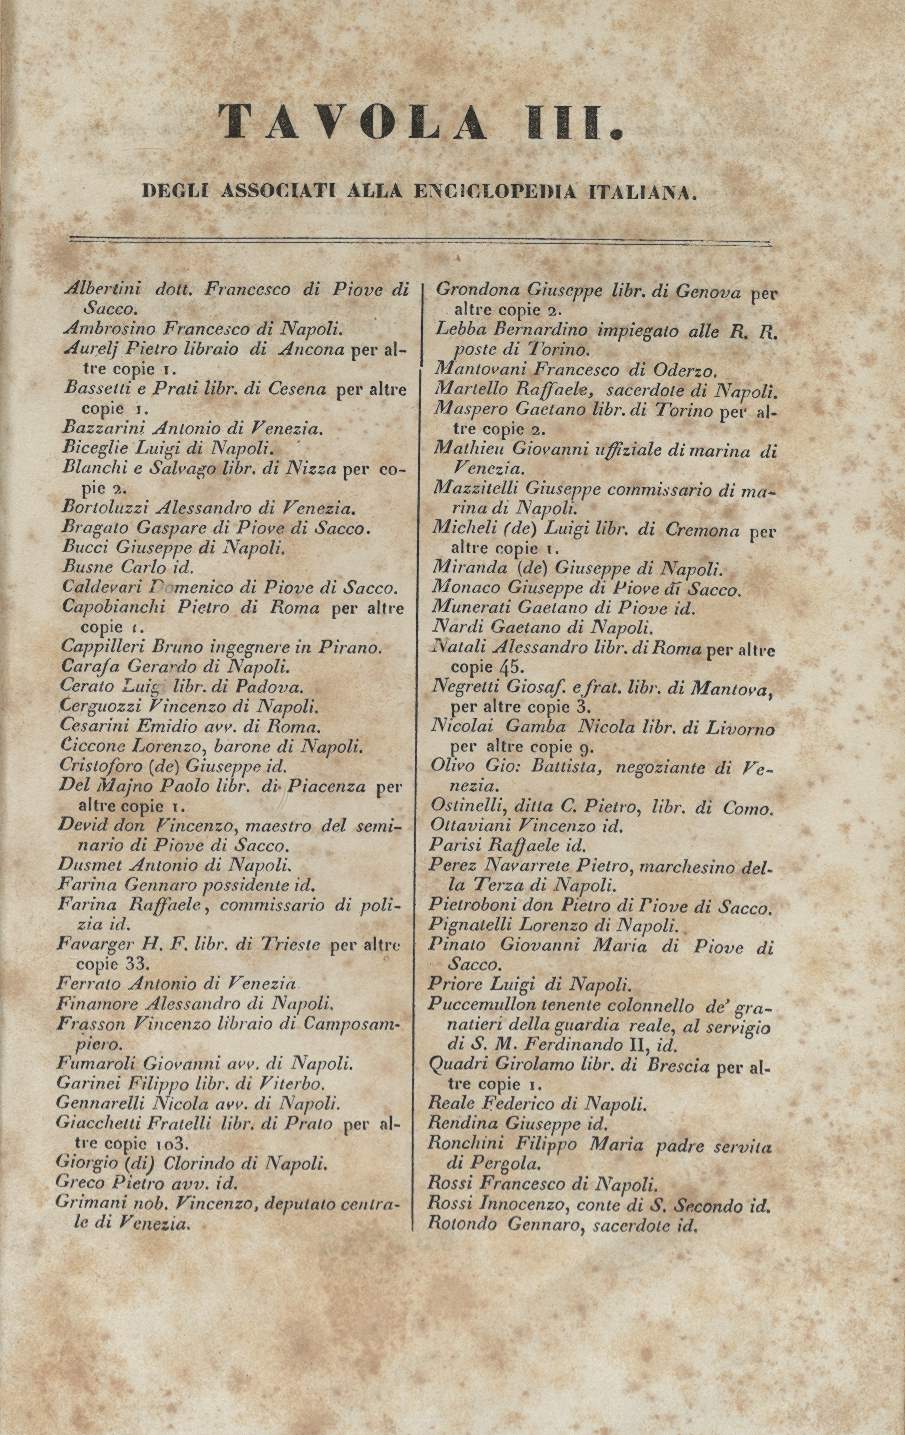 TAVOLA III.
DEGLI ASSOCIATI ALLA ENCICLOPEDIA ITALIANA.
Albertini dott. Francesco di Piove di
Sacco.
Ambrosino Francesco di Napoli.
Aurelj Pietro libraio di Ancona per al-
tre copie 1.
Bassetti e Prati libr. di Cesena per altre
copie 1.
Bazzarini Antonio di Venezia.
Biceglie Luigi di Napoli.
Blanchi e Salvago libr. di Nizza per co-
pie 2.
Bortoluzzi Alessandro di Venezia.
Bragato Gaspare di Piove di Sacco.
Bucci Giuseppe di Napoli.
Busne Carlo id.
Caldevari Domenico di Piove di Sacco.
Capobianchi Pietro di Roma per altre
copie 1.
Cappilleri Bruno ingegnere in Pirano.
Carafa Gerardo di Napoli.
Cerato Luigi libr. di Padova.
Cerguozzi Vincenzo di Napoli.
Cesarini Emidio avv. di Roma.
Ciccone Lorenzo, barone di Napoli.
Cristoforo (de) Giuseppe id.
Del Majno Paolo libr. di Piacenza per
altre copie 1.
Devid don Vincenzo, maestro del semi-
nario di Piove di Sacco.
Dusmet Antonio di Napoli.
Farina Gennaro possidente id.
Farina Raffaele, commissario di poli-
zia id.
Favarger H. F. libr. di Trieste per altre
copie 33.
Ferrato Antonio di Venezia
Finamore Alessandro di Napoli.
Frasson Vincenzo libraio di Camposam-
piero.
Fumaroli Giovanni avv. di Napoli.
Garinei Filippo libr. di Viterbo.
Gennarelli Nicola avv. di Napoli.
Giacchetti Fratelli libr. di Prato per al-
tre copie 103.
Giorgio (di) Clorindo di Napoli.
Greco Pietro avv. id.
Grimani nob. Vincenzo, deputato centra-
le di Venezia.
Grondona Giuseppe libr. di Genova per
altre copie 2.
Lebba Bernardino impiegato alle R. R.
poste di Torino.
Mantovani Francesco di Oderzo.
Martello Raffaele, sacerdote di Napoli.
Maspero Gaetano libr. di Torino per al-
tre copie 2.
Mathieu Giovanni uffiziale di marina di
Venezia.
Mazzitelli Giuseppe commissario di ma-
rina di Napoli.
Micheli (de) Luigi libr. di Cremona per
altre copie 1.
Miranda (de) Giuseppe di Napoli.
Monaco Giuseppe di Piove di Sacco.
Munerati Gaetano di Piove id.
Nardi Gaetano di Napoli.
Natali Alessandro libr. di Roma per altre
copie 45.
Negretti Giosaf. e frat. libr. di Mantova,
per altre copie 3.
Nicolai Gamba Nicola libr. di Livorno
per altre copie 9.
Olivo Gio: Battista, negoziante di Ve-
nezia.
Ostinelli, ditta C. Pietro, libr. di Como.
Ottaviani Vincenzo id.
Parisi Raffaele id.
Perez Navarrete Pietro, marchesino del-
la Terza di Napoli.
Pietroboni don Pietro di Piove di Sacco.
Pignatelli Lorenzo di Napoli.
Pinato Giovanni Maria di Piove di
Sacco.
Priore Luigi di Napoli.
Puccemullon tenente colonnello de' gra-
natieri della guardia reale, al servigio
di S. M. Ferdinando II, id.
Quadri Girolamo libr. di Brescia per al-
tre copie 1.
Reale Federico di Napoli.
Rendina Giuseppe id.
Ronchini Filippo Maria padre servita
di Pergola.
Rossi Francesco di Napoli.
Rossi Innocenzo, conte di S. Secondo id.
Rotondo Gennaro, sacerdote id.